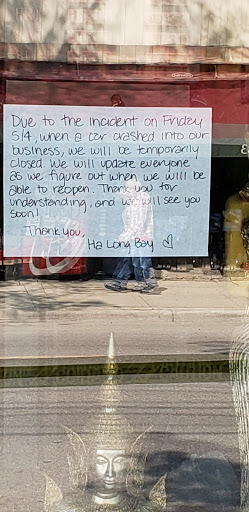 Due to the incident on Friday
5/4, when a car crashed into our
business, we will be temporarily
closed. We will update everyone
as we figure out when we will be
able to reopen. Thank you for
understanding, and we will see you
soon!
Thank you,
Ha Long Bay